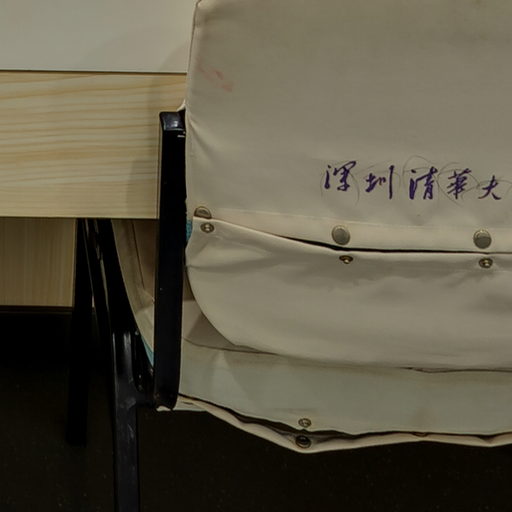 深圳清華大